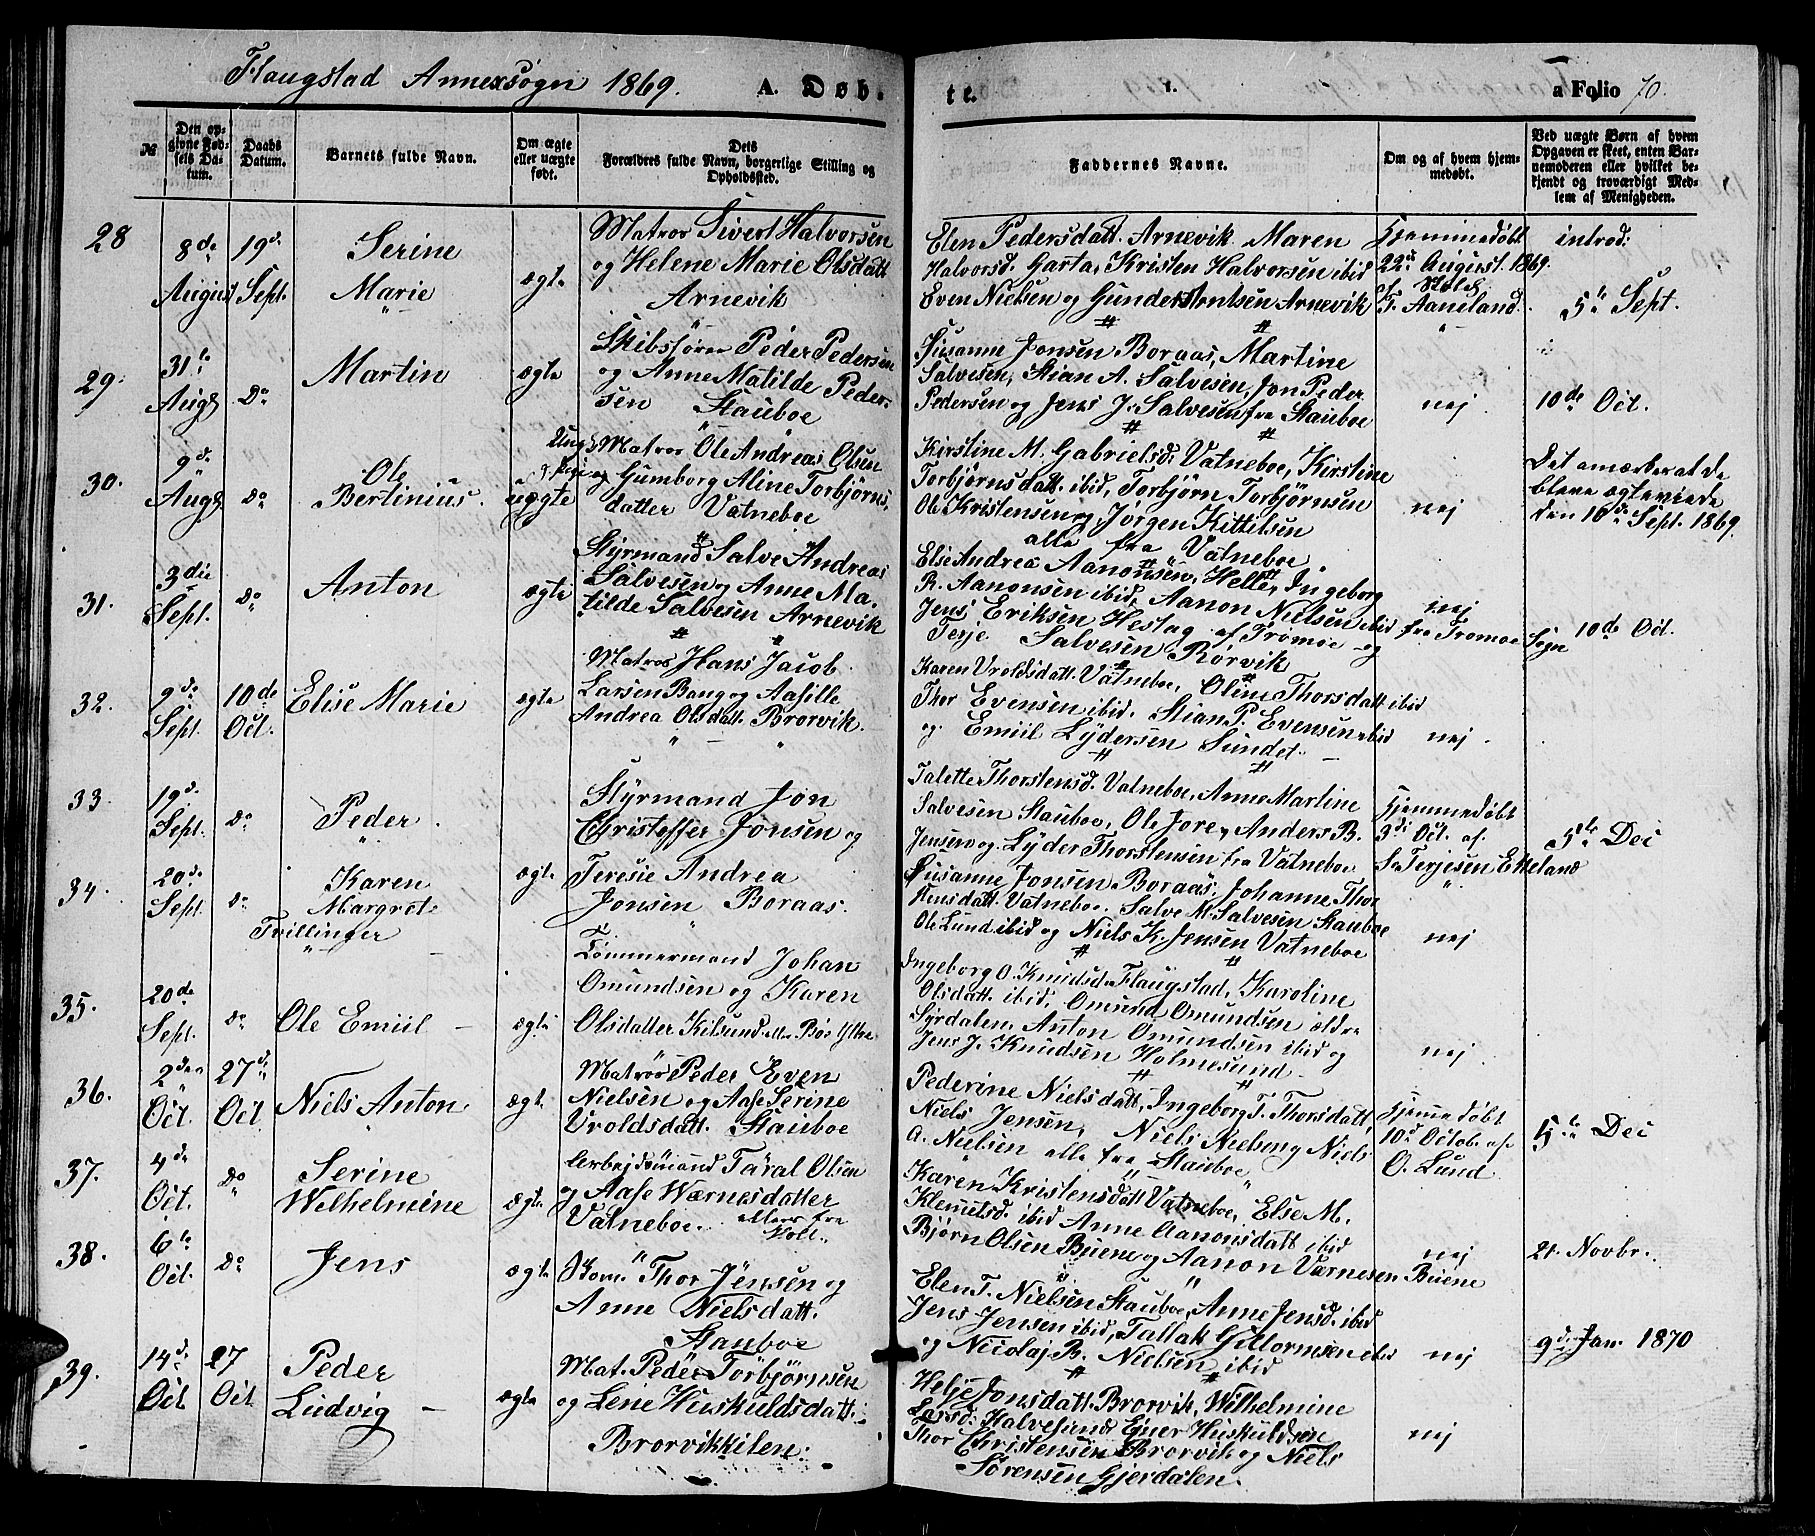 Flaugstad Annexsogn 1869. A. Døb-
te. 1. a Folio 70.
№
Den op-
givne Fød-
sels Da-
tum.
Daabs
Datum.
Barnets fulde Navn.
Om ægte
eller uægte
født.
Dets
Forældres fulde Navn, borgerlige Stilling og
Opholdssted.
Faddernes Navne.
Om og af hvem hjem-
medøbt.
Ved uægte Børn af hvem
Opgaven er skeet, enten Bar-
nemoderen eller hvilket be-
kjendt og troværdigt Med-
lem af Menigheden.
28
8de
August
19de
Sept.
Serine
Marie
ægte
Matros Sivert Halvorsen
og Helene Marie Olsdatt
Arnevik
Elen Pedersdatt. Arnevik. Maren
Halvorsd. Garta, Kristen Halvorsen ibid
Even Nielsen og Gunder Arntsen Arnevik
Hjemmedøbt
22de August. 1869.
T. Aaneland.
introd:
5te Sept.
29.
31te
Aug
Do
Martin
ægte
Skibsfører Peder Pedersen
og Anne Matilde Peder-
sen Stauboe
Susanne Jonsen Boraas, Martine
Salvesen, Stian A. Salvesen, Jon Peder
Pedersen og Jens J. Salvesen fra Stauboe
nej
10de Oct.
30.
9de
Aug
do
Ole
Bertinius.
uægte
Ungk. Matros Ole Andreas Olsen
og Gumborg Aline Torbjørns-
datter Vatneboe
Kirstine M. Gabrielsd. Vatneboe, Kirstine
Torbjørnsdatt. ibid, Torbjørn Torbjørnsen
Ole Kristensen og Jørgen Kittilsen
alle fra Vatneboe
nej
Det anmærkes at de
bleve ægteviede
den 10de Sept. 1869.
31.
3die
Sept.
do
Anton
ægte
Styrmand Salve Andreas
Salvesen og Anne Ma-
tilde Salvesen Arnevik
Else Andrea Aanonsen, Helle, Ingeborg
R. Aanonsen ibid, Aanon Nielsen ibid
Jens Eriksen Hestag af Tromøe og
Terje Salvesen Rørvik
nej
fra Tromøe Sogn
10de Oct.
32.
9de
Sept.
10de
Oct.
Elise Marie
ægte
Matros Hans Jacob
Larsen Baug og Aasille
Andrea Olsdatt. Brorvik.
Karen Vroldsdatt. Vatneboe, Oline Thorsdatt ibid
Thor Evensen ibid. Stian P. Evensen ibid
og Emiil Lydersen Sundet.
nej.
33
19de
Sept.
do
Peder.
Styrmand Jon
Christoffer Jonsen og
Talette Thorstensd. Vatneboe, Anne Martine
Salvesen Stauboe, Ole Jore, Anders B.
Jensen og Lyder Thorstensen fra Vatneboe
Hjemmedøbt
3di Oct. af
S. Terjesen Ekeland
5te Dec
34.
20de
Sept.
do
Karen
Margrete
Tvillinger
ægte
Teresie Andrea
Jonsen Boraas.
Susanne Jonsen Boraas, Johanne Thor
stensdatt. Vatneboe. Salve M. Salvesen Stauboe
Ole Lund ibid og Niels K. Jensen Vatneboe
nej
35.
20de
Sept.
do
Ole Emiil
ægte
Tømmermand Johan
Omundsen og Karen
Olsdatter Kilsund
Ingeborg O. Knudsd. Flaugstad, Karoline
Olsdatt. ibid, Omund Omundsen ældre
Syrdalen, Anton Omundsen ibid og
Jens J. Knudsen Holmesund
nej
36.
2den
Oct.
27de
Oct
Niels Anton
ægte
Matros Peder Even
Nielsen og Aase Serine
Vroldsdatt. Stauboe
Pederine Nielsdatt, Ingeborg T. Thorsdatt,
Niels Jensen, Niels Nielsen og Niels
A. Nielsen alle fra Stauboe
Hjemmedøbt
10d Octobr af
O. Lund
5te Dec
37.
4de
Oct.
do
Serine
Wilhelmine
ægte
Arbejdsmand Taral Olsen
og Aase Wærnesdatter
Vatneboe. ellers fra
Holt.
Karen Kristensdatt Vatneboe, Else M.
Klemetsd. ibid Anne Aanonsdatt ibid
Bjørn Olsen Buene og Aanon Værnesen Buene
nej
21. Novbr.
38.
6te
Oct.
do
Jens
ægte
Thor Jensen og
Anne Nielsdatt.
Stauboe
Elen T. Nielsen Stauboe, Anne Jensd. ibid
Jens Jensen ibid, Tallak Guttormsen ibid
og Nicolaj B. Nielsen ibid
nej
9de Jan. 1870
39.
14de
Oct
27
Oct
Peder
Ludvig
ægte
Mat. Peder Torbjørnsen
og Lene Huskuldsdatt.
Brorvikkilen.
Helje Jonsdatt. Brorvik, Wilhelmine
Larsd. Halvesund, Ener Huskuldsen
Thor Christensen Brorvik og Niels
Sørensen Gjerdalen.
nej